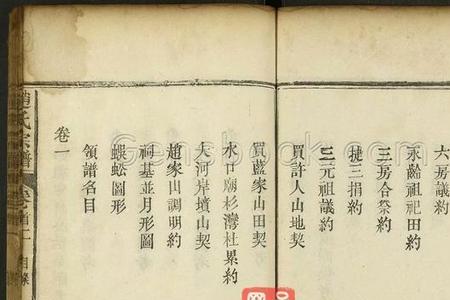 六房議約
永齡祖祀田約
三房合祭約
捷三捐約
三元祖議約
買許人山地契
買藍家山田契
水口廟杉灣杜累約
大河岸墳山契
趙家山調明約
祠基並月形圖
蜈蚣圖形
領譜名目
卷一
趙氏宗譜
卷首一
目條
Gensbook.com